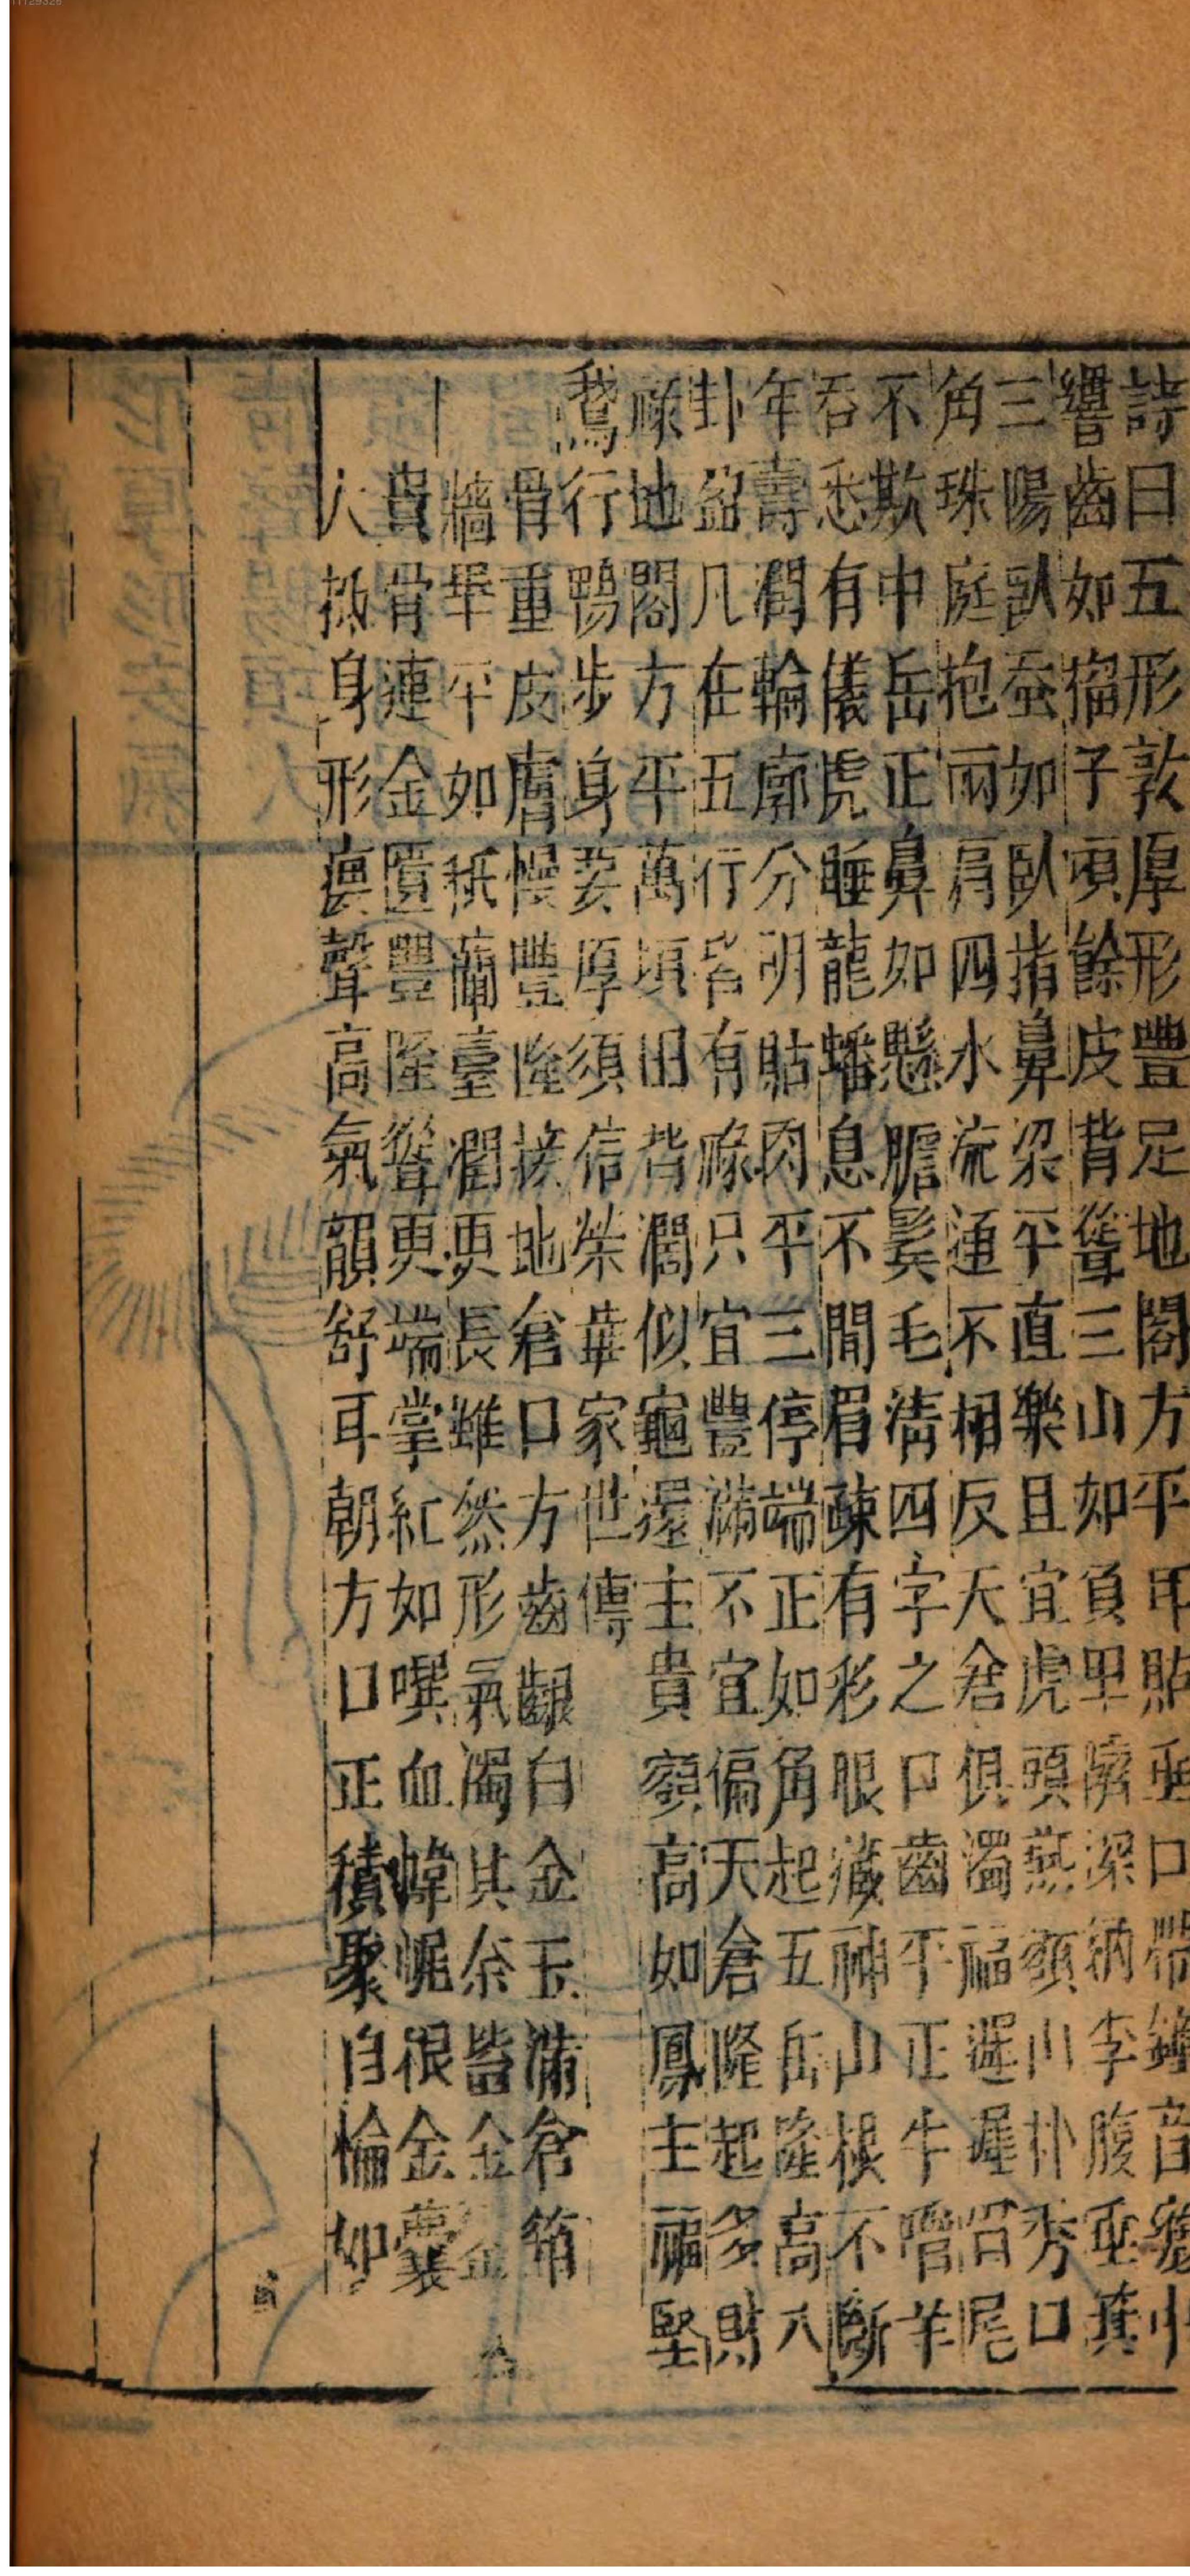 詩曰五形敦厚形豐足地閣方平甲貼垂口帶鐘音聲
響齒如榴子項餘皮背聳三山如負甲臍深納李腹垂箕
三陽臥蚕如臥指鼻梁平直樂且宜虎頭燕頷川扑秀口
角珠庭抱兩肩四水流通不相反天倉俱濁福遲遲沼尾
不欺中岳正鼻如懸膽鬂毛清四字之口齒平正牛噌羊
吞悉有儀虎睡龍蟠息不聞眉疎有彩眼藏神山根不斷
年壽潤輪廓分明貼肉平三停端正如角起五岳隆高八
卦盈凡在五行皆有祿只宜豐滿不宜偏天倉隆起多財
祿地閣方平萬頃田背濶似龜還主貴額高如鳳主福堅
鵞行鴨步身要厚須信榮華家世傳
骨重皮膚慢豐隆接地倉口方齒齦白金玉滿倉箱
牆壁平如秖蘭臺潤更長雖然形氣濁其奈皆金
貴骨連金匱豐隆聳更端掌紅如噀血幃幄很金
人抵身形癭聲高氣韻舒耳朝方口正積聚自惀如
11129326